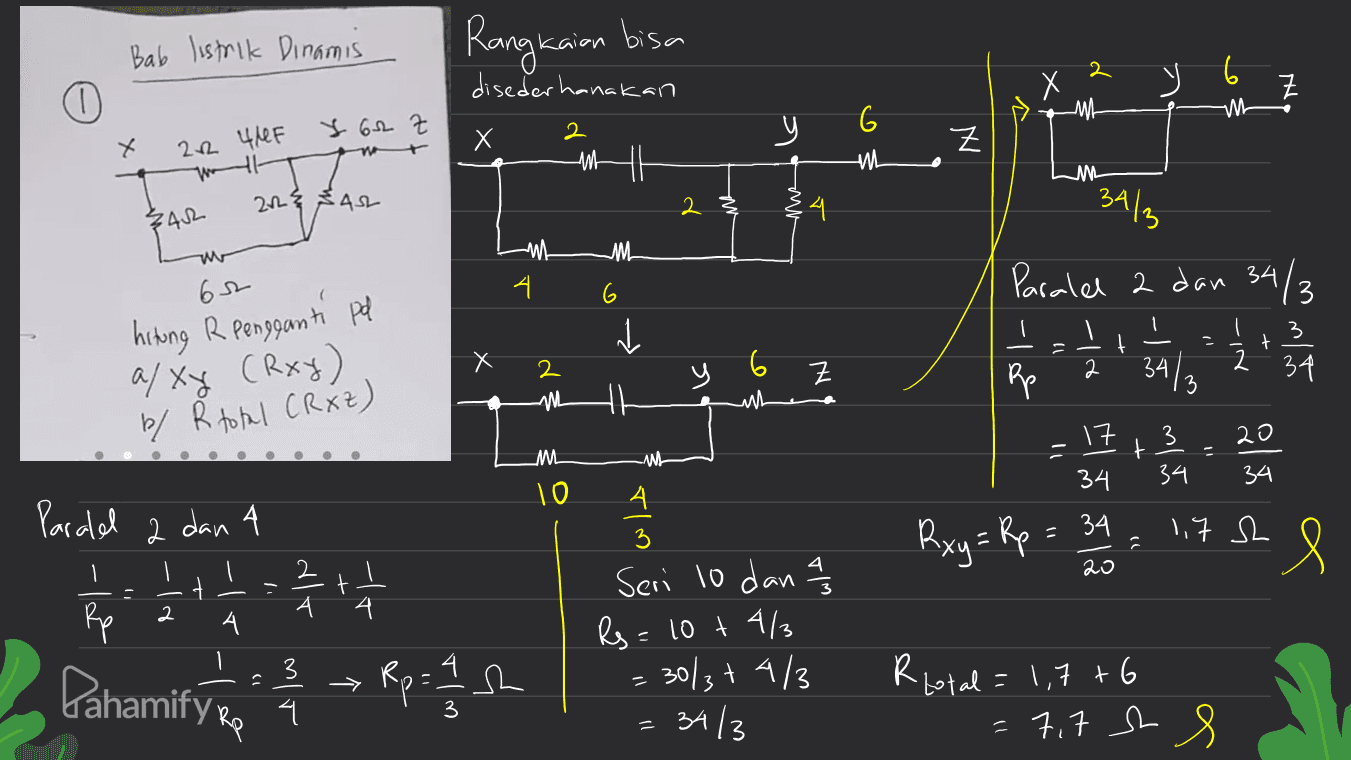 Bab listrik Dinamis
1
X 2Ω 4μF y 6Ω Z
4Ω 2Ω 4Ω
6Ω
hitung R pengganti pd
a/ xy (Rxy)
b/ R total (Rxz)
Rangkaian bisa
disederhanakan
X 2 y 6 Z
2 4
4 6
↓
X 2 y 6 Z
10 4/3
X 2 y 6 Z
34/3
Paralel 2 dan 4
1/Rp = 1/2 + 1/4 = 2/4 + 1/4
1/Rp = 3/4 → Rp = 4/3 Ω
Seri 10 dan 4/3
Rs = 10 + 4/3
= 30/3 + 4/3
= 34/3
Paralel 2 dan 34/3
1/Rp = 1/2 + 1/34/3 = 1/2 + 3/34
= 17/34 + 3/34 = 20/34
Rxy = Rp = 34/20 = 1,7 Ω
Rtotal = 1,7 + 6
= 7,7 Ω
Pahamify